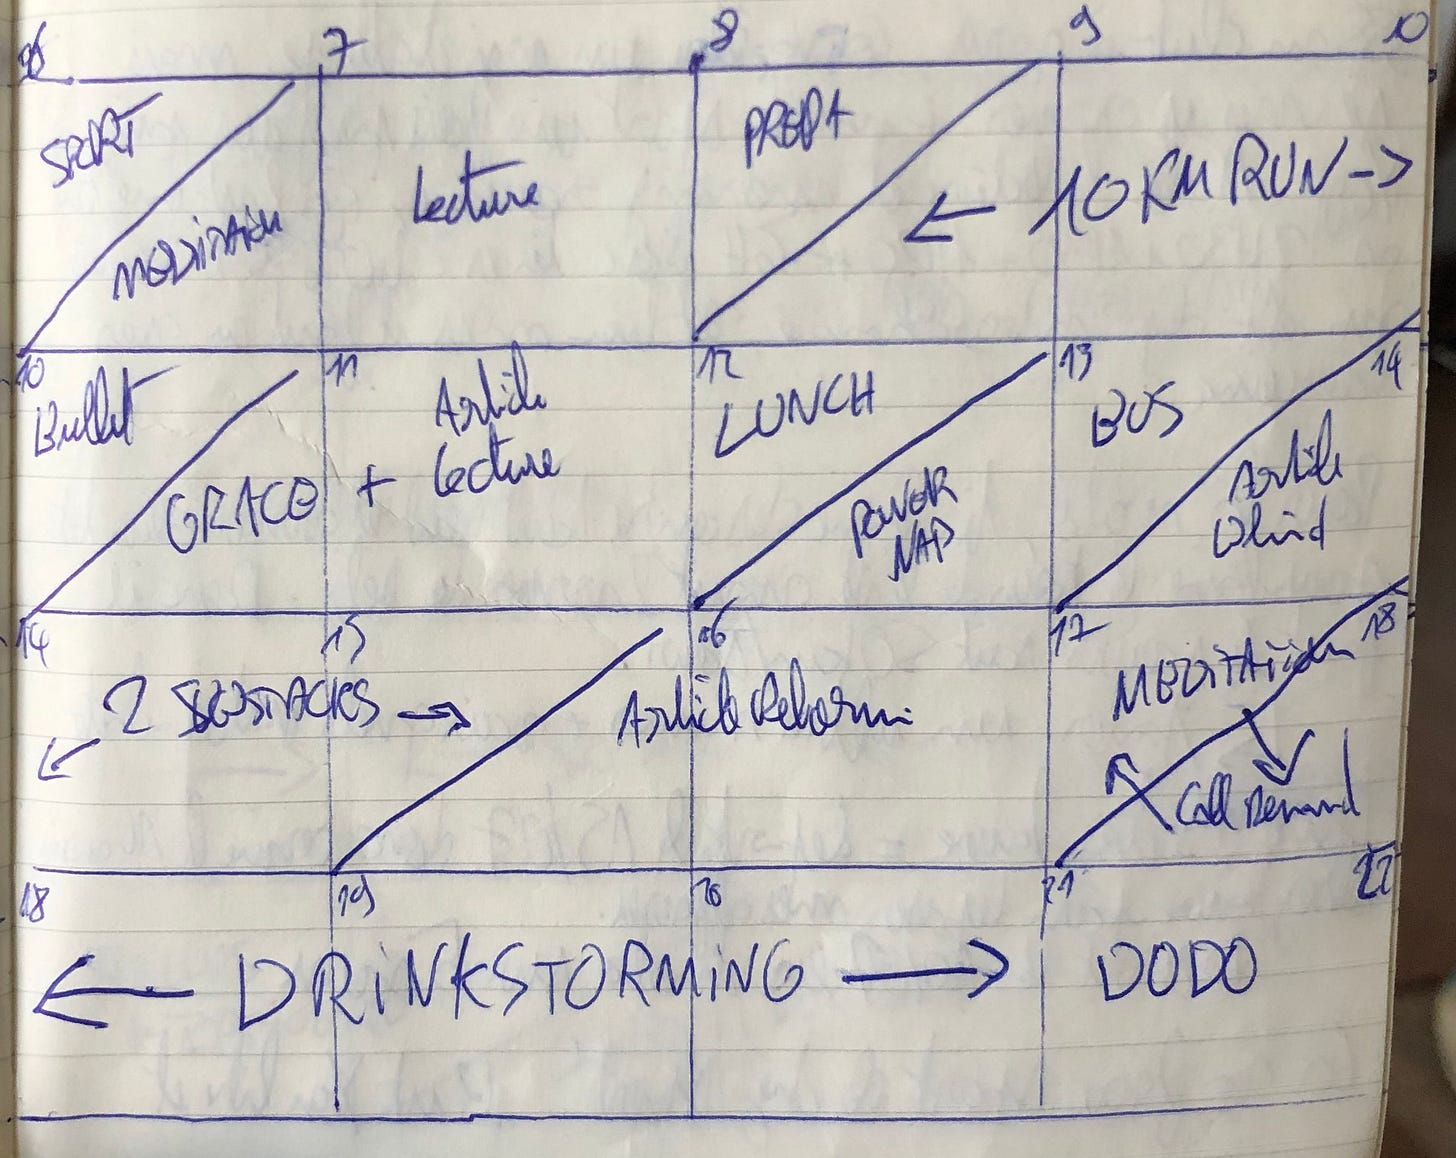 6 7 8 9 10
SPORT
MEDITATION
Lecture
PREPA
← 10 KM RUN →
10 11 12 13 14
Bullet
GRACE + Article
Lecture
LUNCH
POWER
NAP
BUS
Article
14 15 16 17 18
← 2 SUBSTACKS →
Article
MEDITATION
Call
18 19 20 21 22
← DRINKSTORMING →
DODO